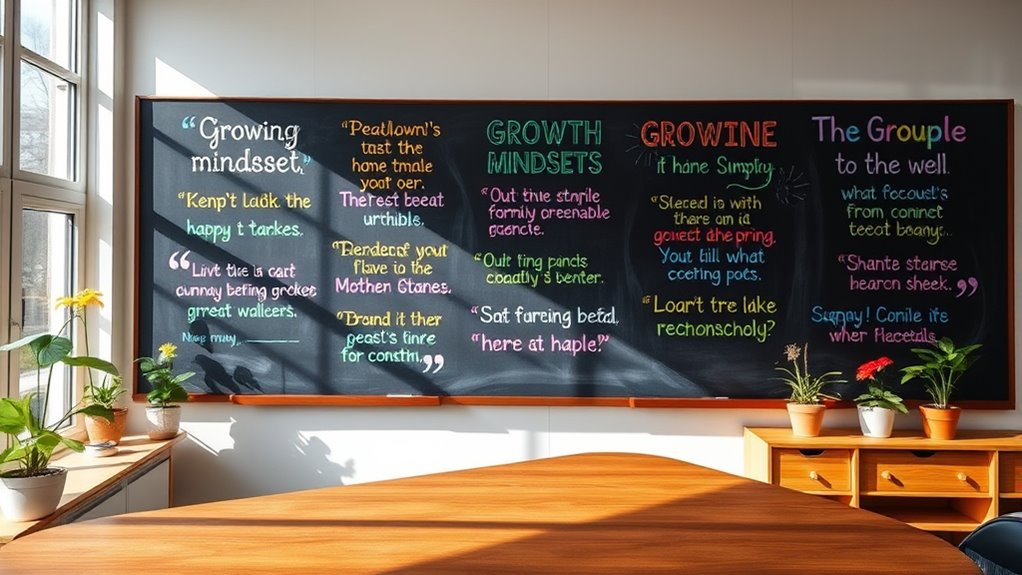 “Growing
mindsset,”
“Kenp't ladk the
happy t tarkes.
“Livt tke is cart
cunnay befing grokes
great walleers.
“Peatlown's
tast the
home tmale
yoat oer.
Therest beeat
urthible.
“Benders of your
flave to the
Mothen Ctanes.
“Brand it ther
peast's finre
for constin,”
GROWTH
MINDSETS
“Out thie stnfile
formily preenable
gaencle.
“Oult fing pands
coadity's benter.
“Sat farreing betal.
“here at haple?”
GROWINE
it hane Simply
“Sleced is with
there an ia
gonect dhe pring.
Yout lill what
ccering pots.
“Loar't tre lake
rechonscholy?
The Grouple
to the well.
what focoud's
from coninet
teeot beangy..
“Shante starse
hearon sheek.”
Sugnay! Conile it's
wher Hacetals.